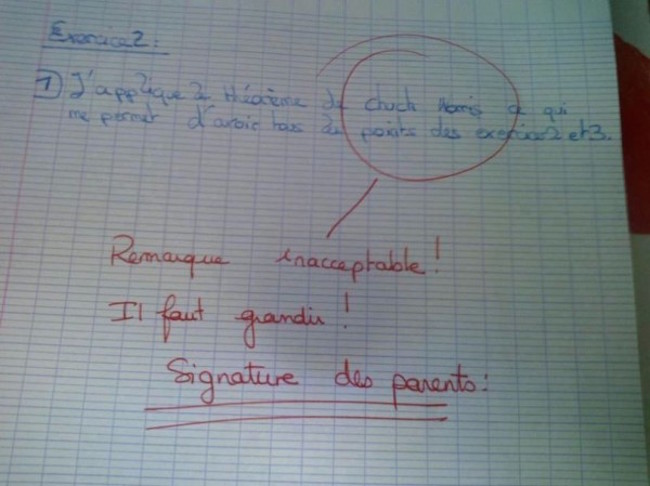 Exercice 2:
1) J'applique le théorème de chuck Norris ce qui
me permet d'avoir tous les points des exercice 2 et 3.
Remarque inacceptable!
Il faut grandir!
Signature des parents: